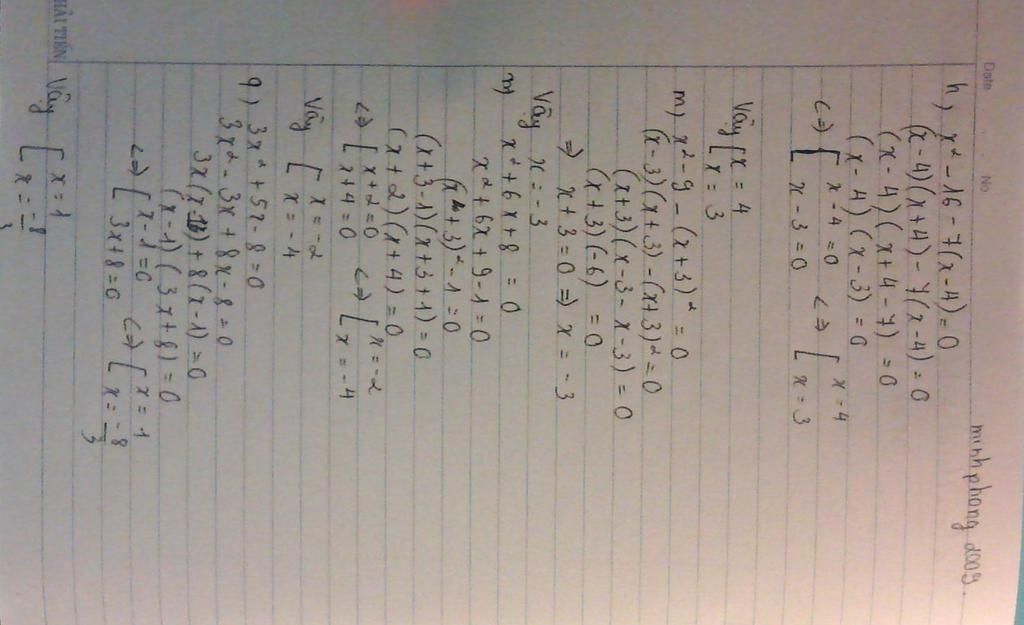 Date
No.
minhphang 2009.
h) x² - 16 - 7(x-4) = 0
(x-4)(x+4) - 7(x-4) = 0
(x-4)(x+4-7) = 0
(x-4)(x-3) = 0
<=> [ x-4=0 <=> [ x=4
x-3=0 x=3
Vậy [ x=4
x=3
m) x² - 9 - (x+3)² = 0
(x-3)(x+3) - (x+3)² = 0
(x+3)(x-3-x-3) = 0
(x+3)(-6) = 0
=> x+3=0 => x=-3
Vậy x=-3
m) x² + 6x + 8 = 0
x² + 6x + 9 - 1 = 0
(x+3)² - 1 = 0
(x+3-1)(x+3+1) = 0
(x+2)(x+4) = 0
<=> [ x+2=0 <=> [ x=-2
x+4=0 x=-4
Vậy [ x=-2
x=-4
q) 3x² + 5x - 8 = 0
3x² - 3x + 8x - 8 = 0
3x(x-1) + 8(x-1) = 0
(x-1)(3x+8) = 0
<=> [ x-1=0 <=> [ x=1
3x+8=0 x=-8/3
Vậy [ x=1
x=-8/3
HẢI TIẾN